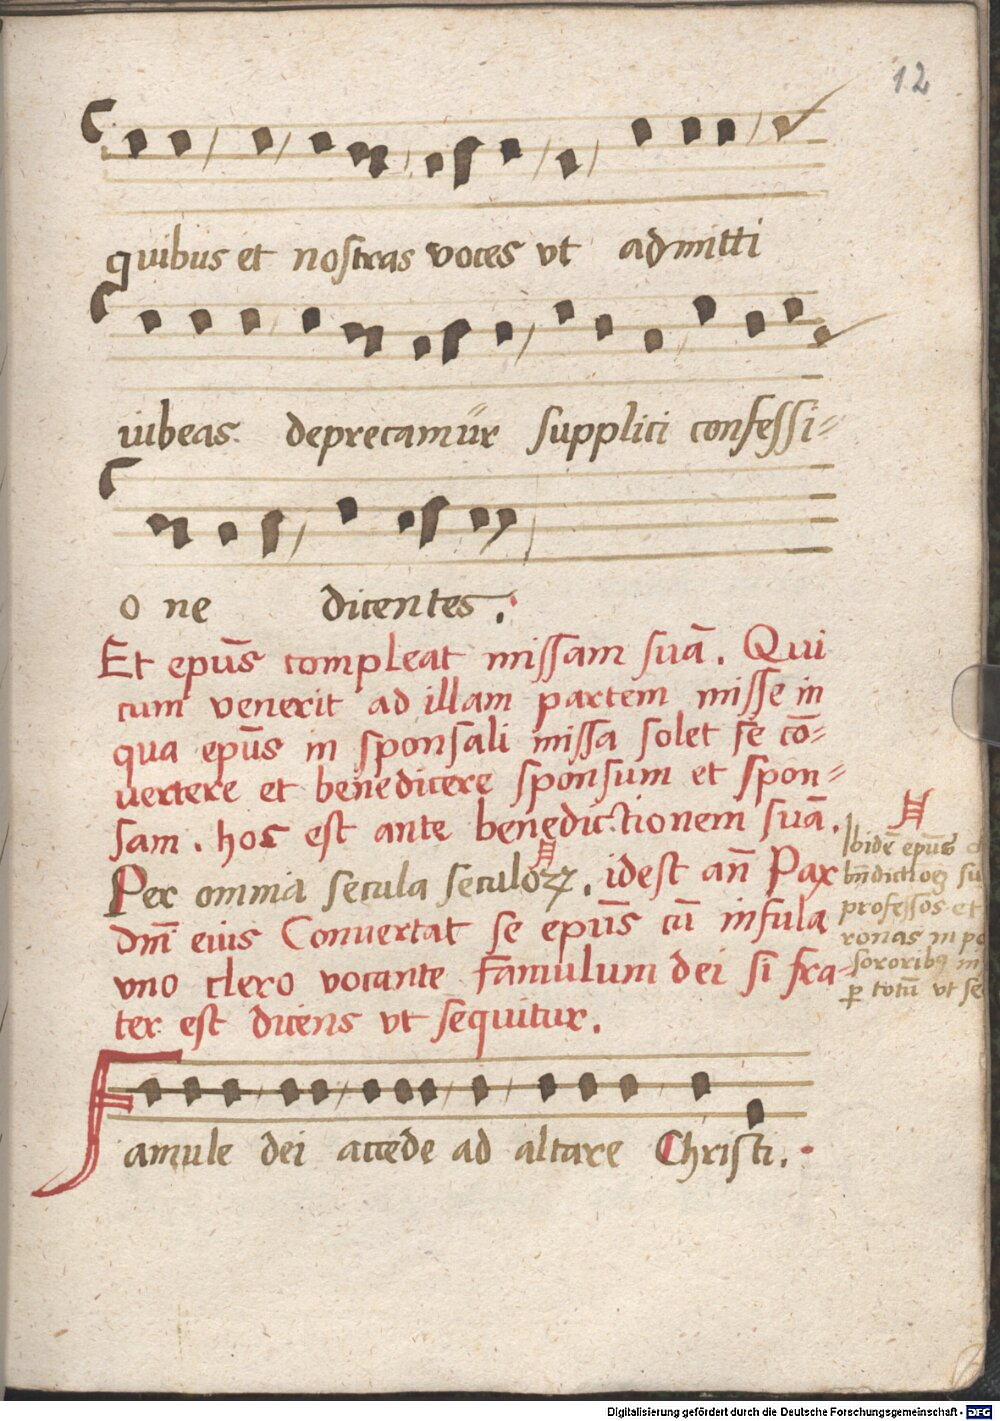 12
quibus et nostras voces vt admitti
iubeas deprecamur̃ supplici confessi=
o ne dicentes.
Et ep̃us compleat missam suã. Qui
cum venerit ad illam partem misse in
qua ep̃us in sponsali missa solet se cõ=
uertere et benedicere sponsum et spon=
sam. hoc est ante benedictionem suã.
Per omnia secula seculoꝝ. idest añ Pax
dm̃ eius Conuertat se ep̃us cũ infula
vno clero vocante Famulum dei si fra-
ter est dicens vt sequitur.
Ibidẽ ep̃us
professos et
ronas in
sororibꝯ in
ꝑ totũ vt se
Famule dei accede ad altare Christi.
Digitalisierung gefördert durch die Deutsche Forschungsgemeinschaft - DFG